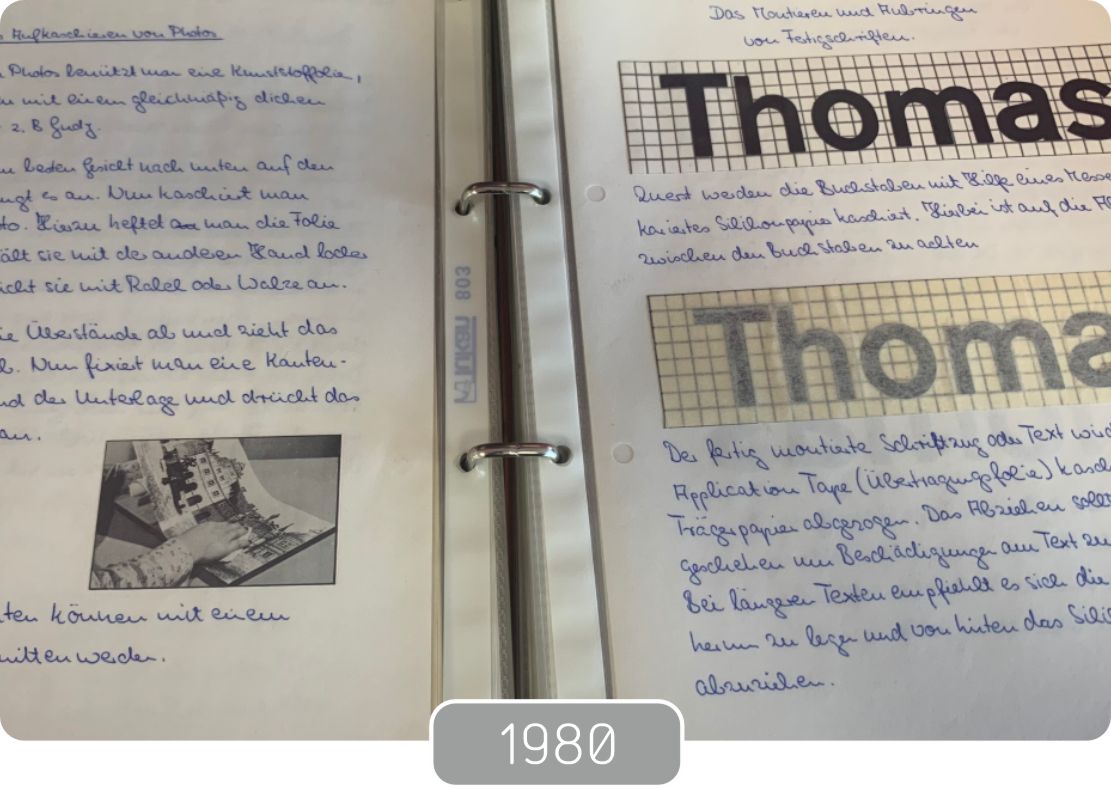 Aufkaschieren von Photos
Photos benützt man eine Kunststoffolie,
mit einem gleichmäßig dicken
z. B Gudy.
besten Gesicht nach unten auf den
es an. Nun kaschiert man
Hierzu heftet man die Folie
hält sie mit der anderen Hand locker
sie mit Rakel oder Walze an.
Überstände ab und zieht das
Nun fixiert man eine Kanten-
der Unterlage und drückt das
an.
können mit einem
werden.
LEITZ 803
Das Montieren und Anbringen
von Fertigschriften.
Thomas
Zuerst werden die Buchstaben mit Hilfe eines Messe
kariertes Silikonpapier kaschiert. Hierbei ist auf die
zwischen den Buchstaben zu achten
Thoma
Der fertig montierte Schriftzug oder Text wird
Application Tape (Übertragungsfolie) kasch
Trägerpapier abgezogen. Das Abziehen sollte
geschehen um Beschädigungen am Text zu
Bei längeren Texten empfiehlt es sich die
herum zu legen und von hinten das Sili
abzuziehen.
1980